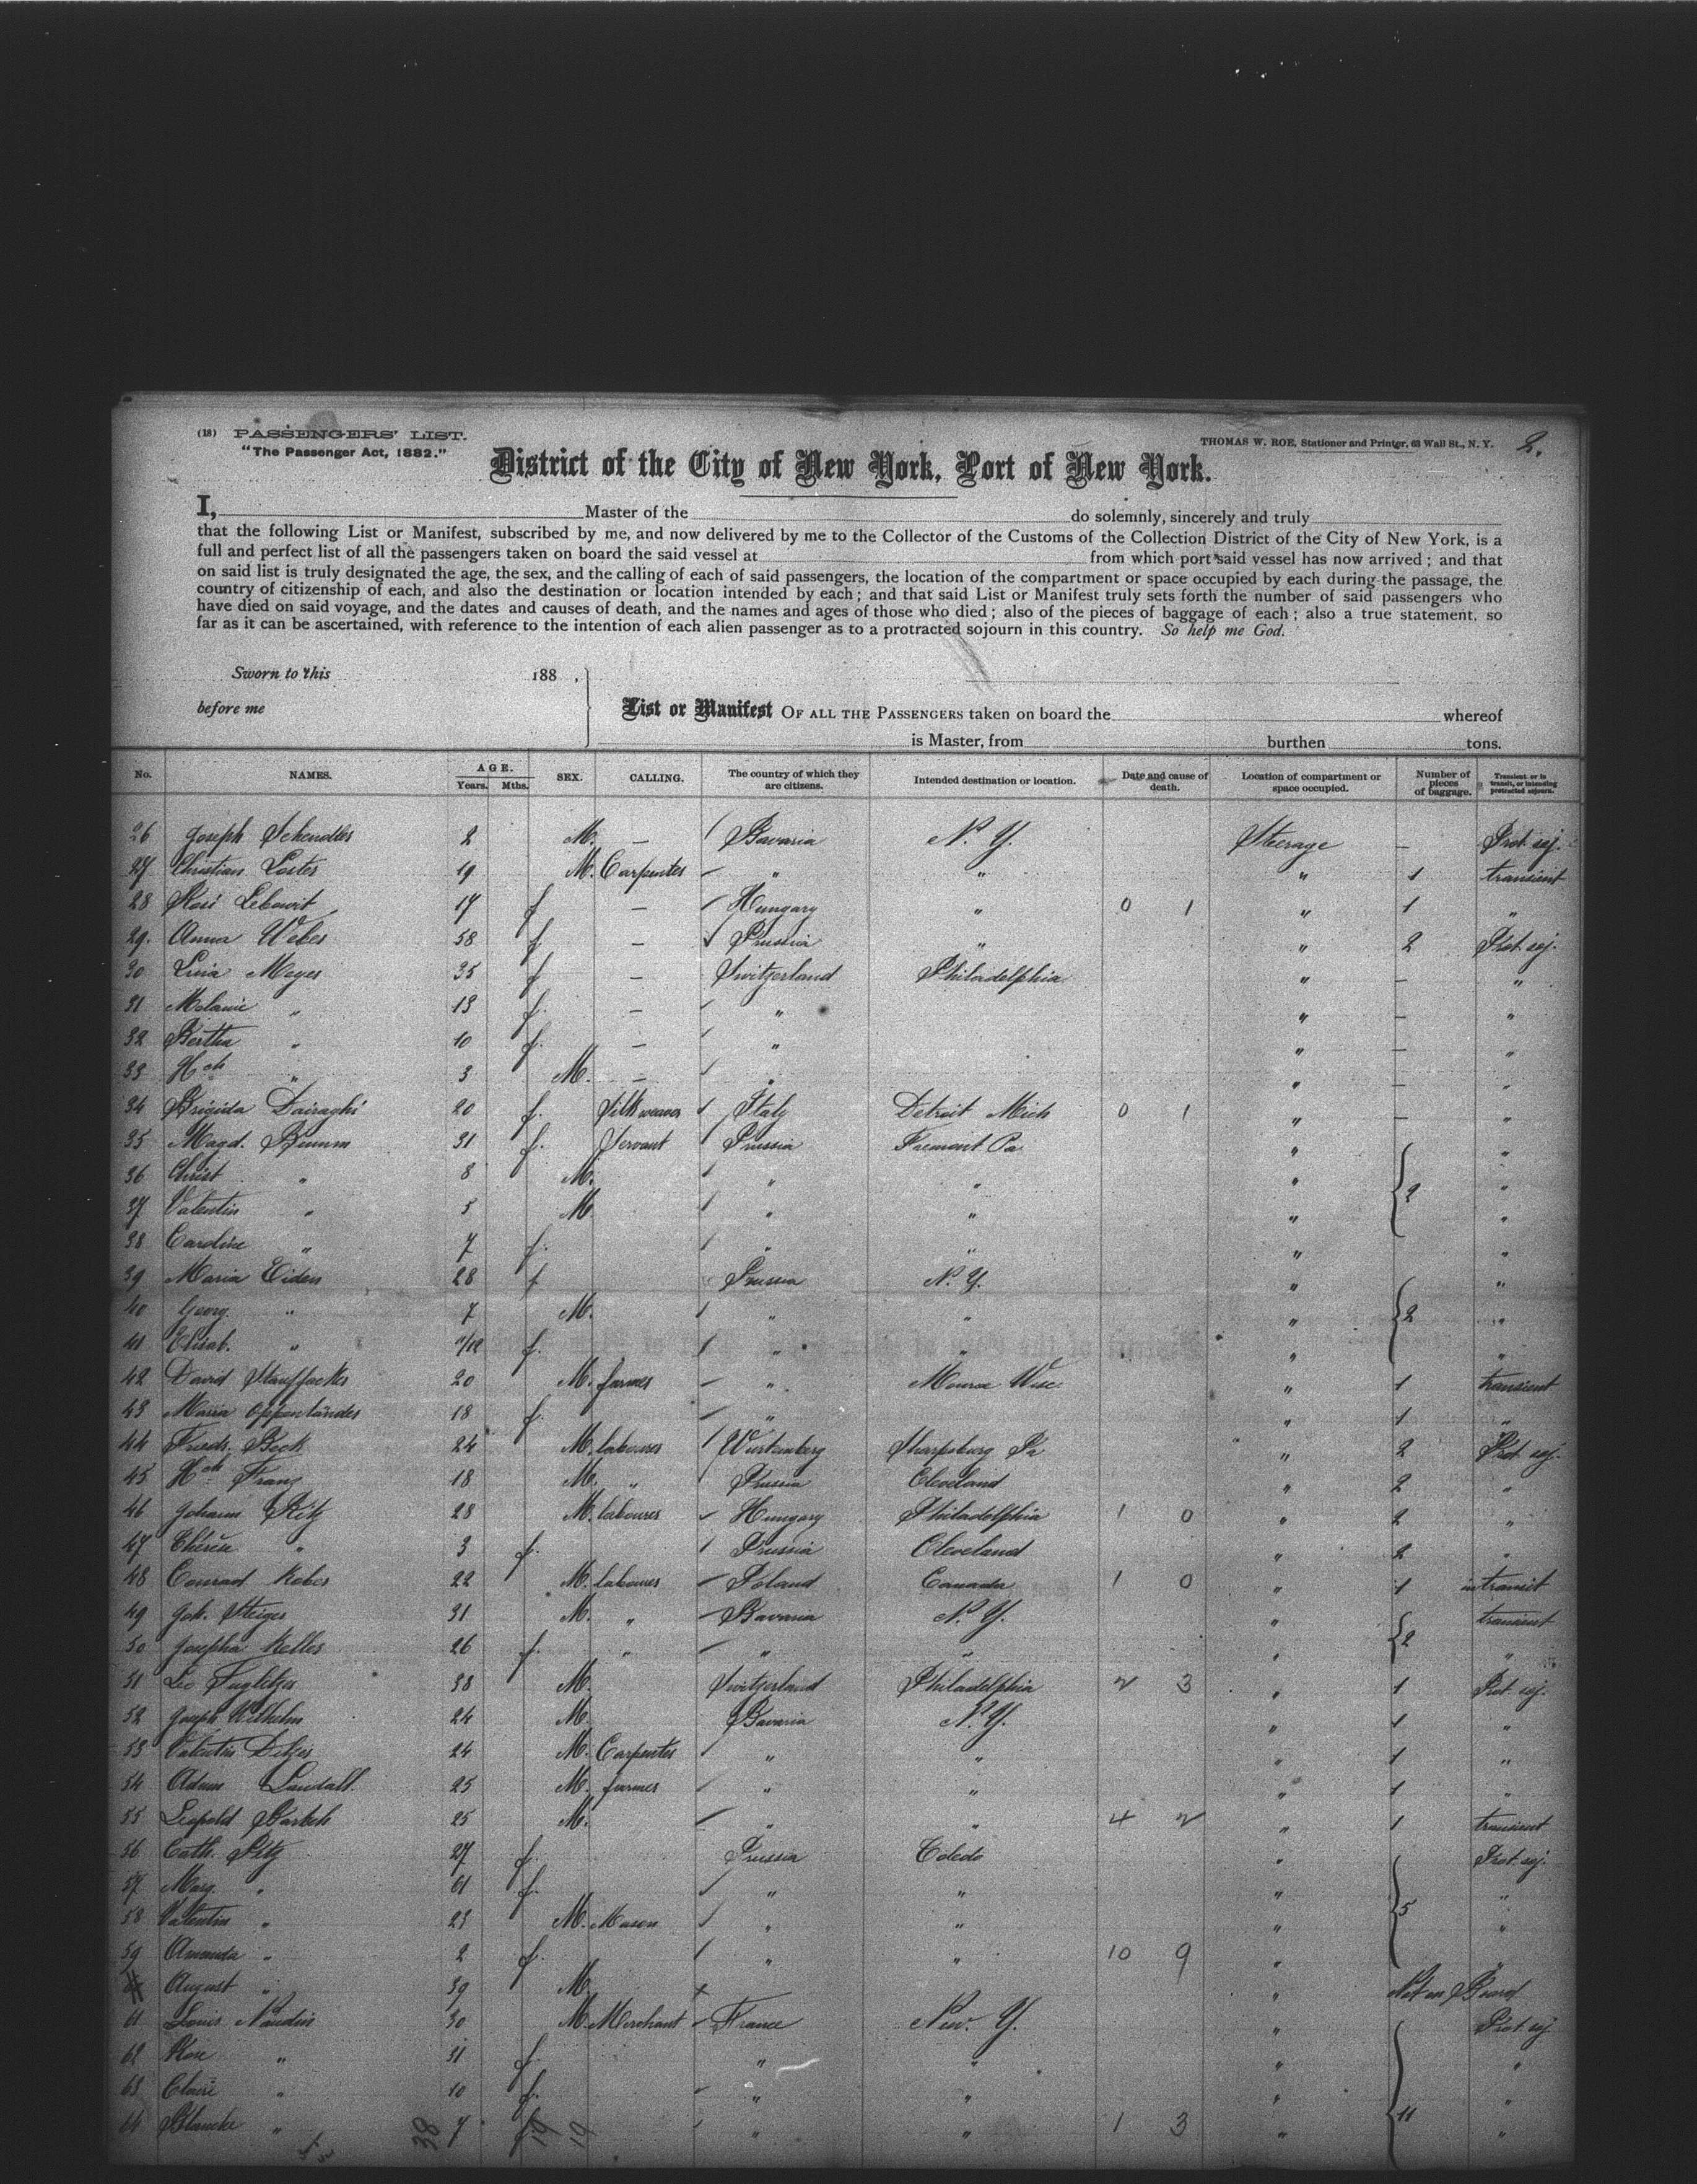 (18) PASSENGERS' LIST.
"The Passenger Act, 1882."
THOMAS W. ROE, Stationer and Printer, 63 Wall St., N. Y. 2.
District of the City of New York, Port of New York.
I, Master of the do solemnly, sincerely and truly
that the following List or Manifest, subscribed by me, and now delivered by me to the Collector of the Customs of the Collection District of the City of New York, is a
full and perfect list of all the passengers taken on board the said vessel at from which port said vessel has now arrived; and that
on said list is truly designated the age, the sex, and the calling of each of said passengers, the location of the compartment or space occupied by each during the passage, the
country of citizenship of each, and also the destination or location intended by each; and that said List or Manifest truly sets forth the number of said passengers who
have died on said voyage, and the dates and causes of death, and the names and ages of those who died; also of the pieces of baggage of each; also a true statement, so
far as it can be ascertained, with reference to the intention of each alien passenger as to a protracted sojourn in this country. So help me God.
Sworn to this 188 ,
before me
List or Manifest OF ALL THE PASSENGERS taken on board the whereof
is Master, from burthen tons.
No. NAMES. AGE. Years. Mths. SEX. CALLING. The country of which they are citizens. Intended destination or location. Date and cause of death. Location of compartment or space occupied. Number of pieces of baggage. Transient or in transit, or intending protracted sojourn.
26 Joseph 2 M. — Bavaria N. Y. Steerage — Prot. soj.
27 Christian 19 M. Carpenter " " " 1 transient
28 17 f — Hungary " 0 1 " 1 "
29. Anna Weber 58 f — Prussia " " 2 Prot. soj.
30 Meyer 35 f — Switzerland Philadelphia " — "
31 Melanie " 13 f. — " " — "
32 Bertha " 10 f. — " " — "
33 Hch " 3 M. — " " — "
34 Brigida Dairaghi 20 f. Silk weaver Italy Detroit Mich 0 1 " — "
35 Magd. Bumm 31 f. Servant Prussia Fremont Pa " "
36 Christ " 8 M. " " " "
37 Valentin " 5 M. " " " 2 "
38 Caroline " 7 f. " " " "
39 Maria Eiden 28 f Prussia N. Y. " "
40 Georg " 7 M. " " " 2 "
41 Elisab. " f. " " " "
42 David Stauffacher 20 M. farmer " Monroe Wisc. " 1 transient
43 Maria Oppenländer 18 f. " " 1 "
44 Friedr. Beck 24 M. labourer Würtemberg Sharpsburg Pa " 2 Prot. soj.
45 Hch Franz 18 M. " Prussia Cleveland " 2 "
46 Johann Ritz 28 M. labourer Hungary Philadelphia 1 0 " 2 "
47 " 3 f. Prussia Cleveland " 2 "
48 Conrad Kober 22 M. labourer Poland Canada 1 0 " 1 in transit
49 Joh. Steiger 31 M. " Bavaria N. Y. " transient
50 Josepha Keller 26 f. " " " " 2 "
51 Leo 38 M. Switzerland Philadelphia 2 3 " 1 Prot. soj.
52 Joseph Wilhelm 24 M. Bavaria N. Y. " 1 "
53 Valentin 24 M. Carpenter " " " 1 "
54 Adam 25 M. farmer " " " 1 "
55 Leopold 25 M. " " 4 2 " 1 transient
56 Cath. 27 f. Prussia Toledo " Prot. soj.
57 Marg. " 61 f. " " " "
58 Valentin " 23 M. Mason " " " 5 "
59 Amanda " 2 f. " " 10 9 " "
August " 39 M. " Not on Board
61 Louis Naudin 30 M. Merchant France New. Y. " Prot. soj.
62 Rose " 31 f. " " " "
63 Claire " 10 f. " " " "
64 Blanche " 7 f " " 1 3 " 11 "
38 19 19